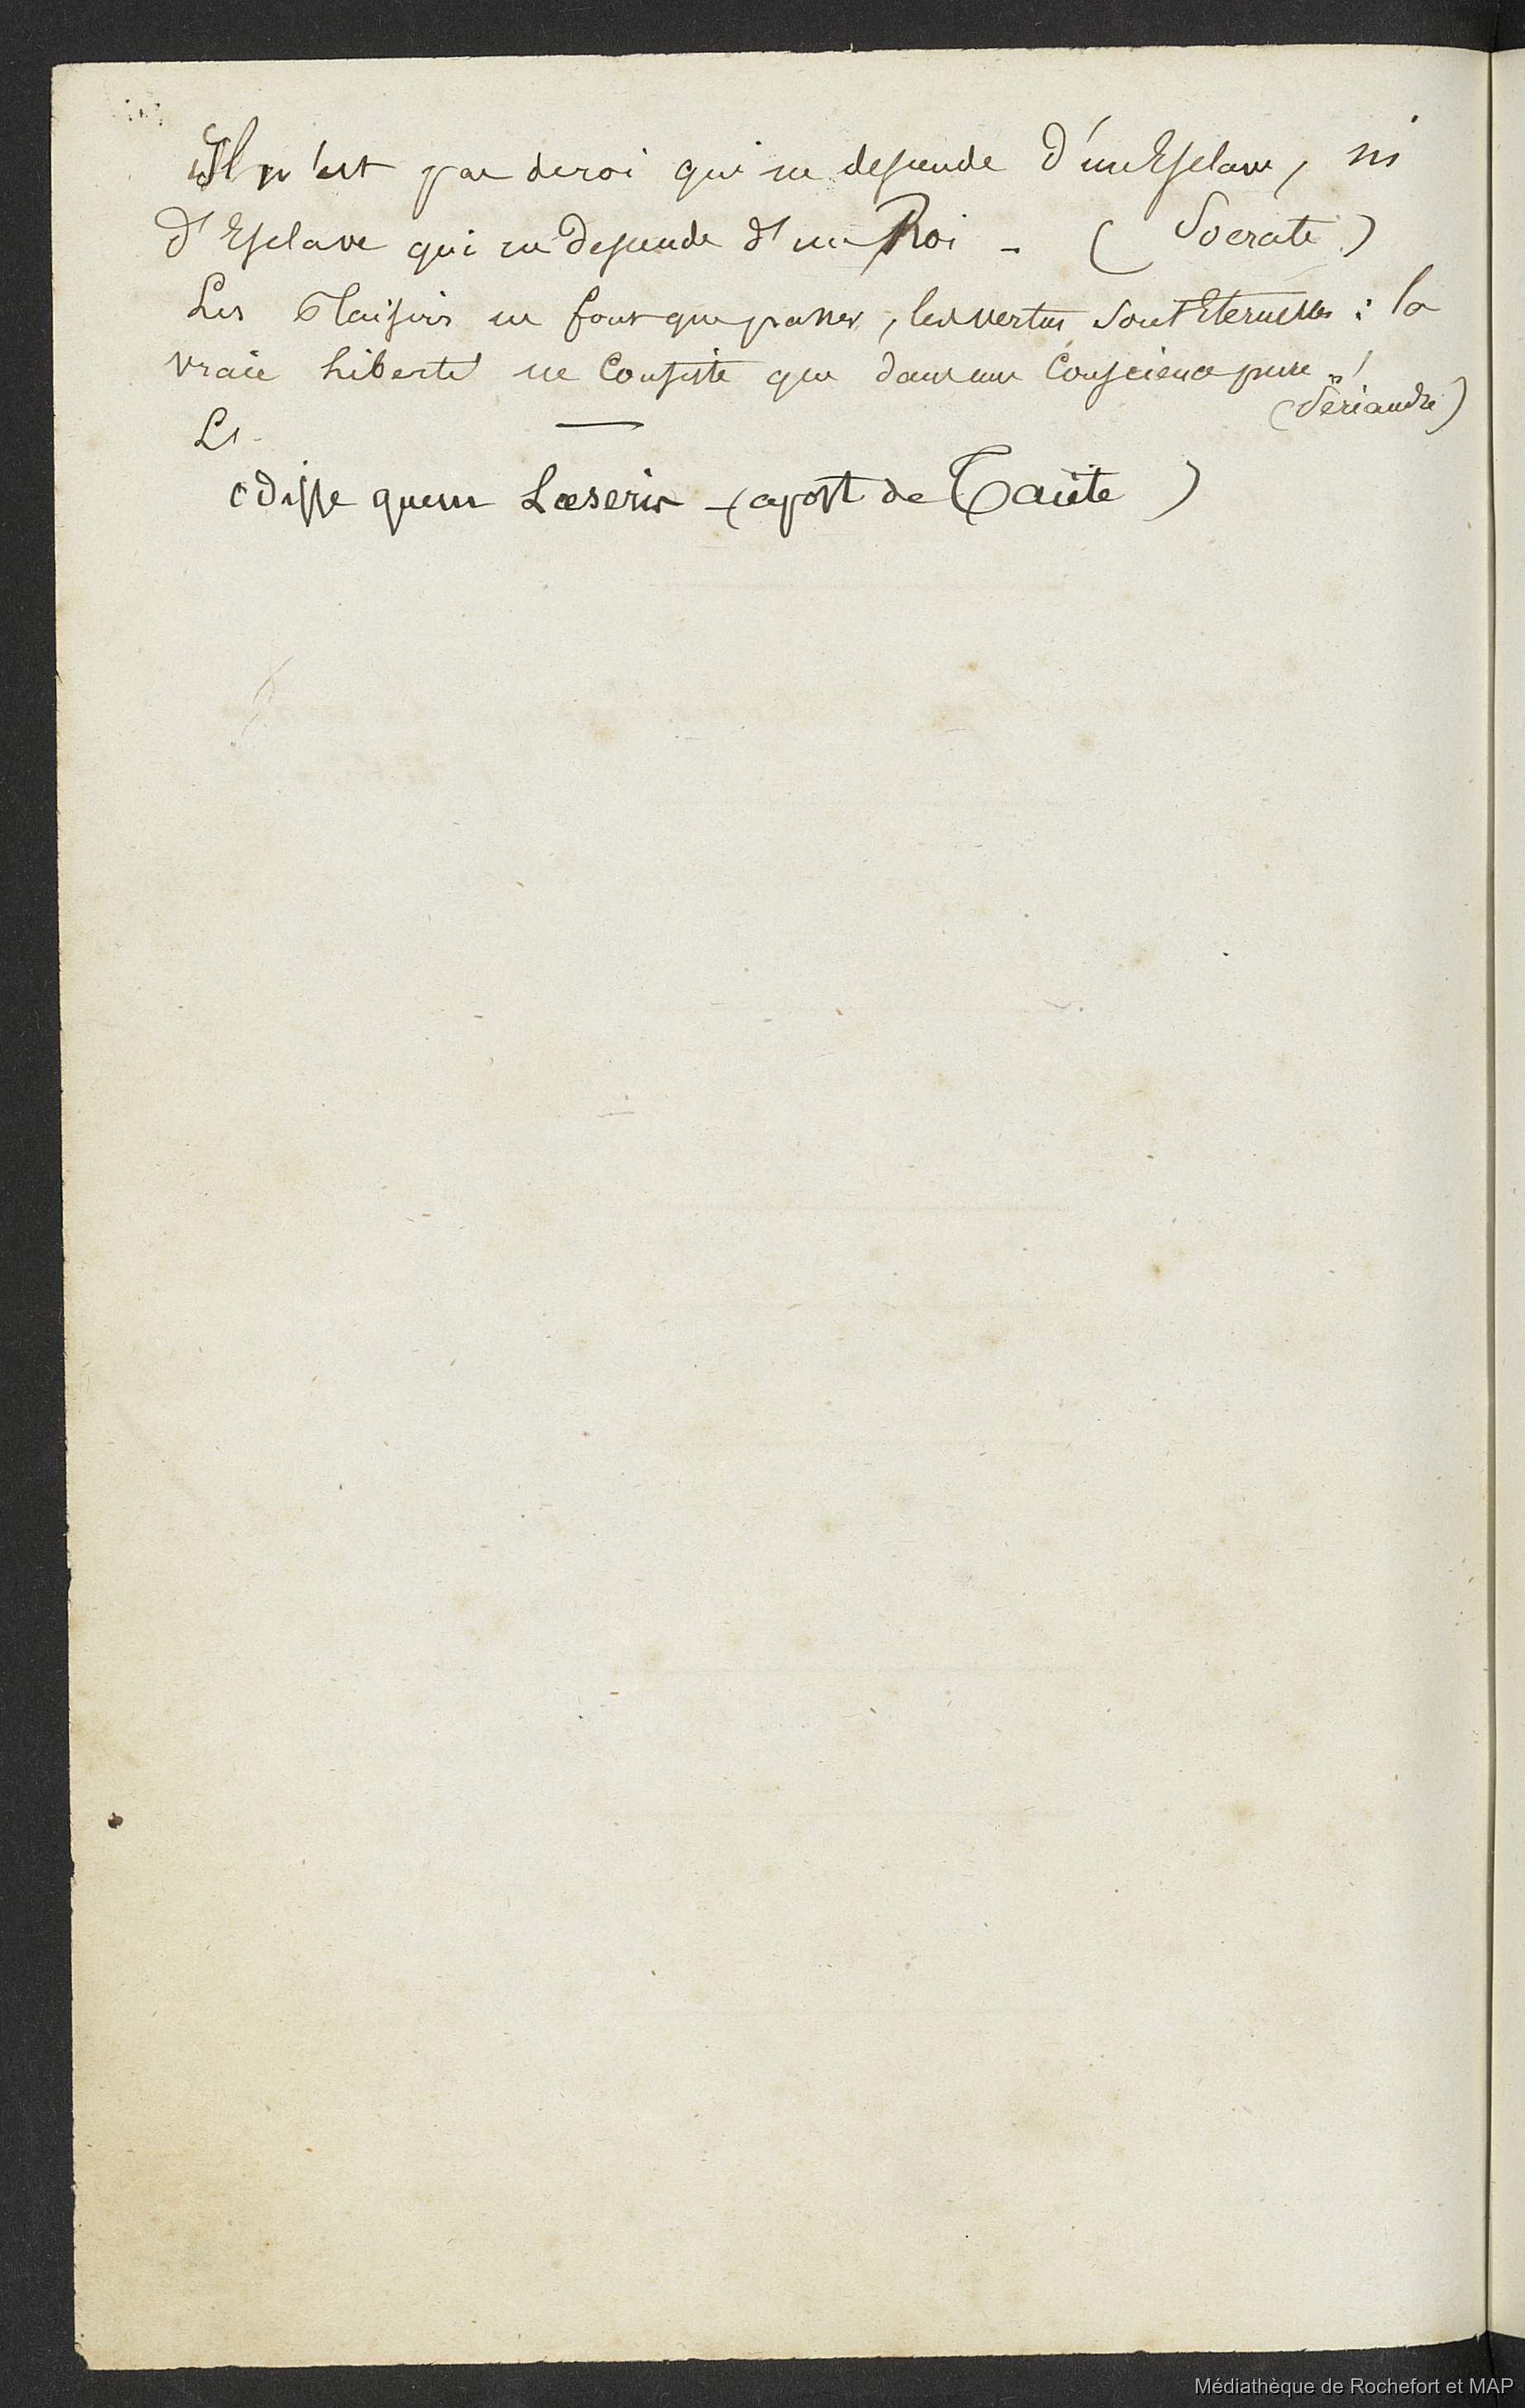 Il n'est pas de roi qui ne depende d'un Esclave, ni
d'Esclave qui ne depende d'un Roi - (Socrate)
Les Plaisirs ne font que passer, les vertus sont Eternelles : la
vraie Liberté ne Consiste que dans une Conscience pure -"
(Periandre)
Ls
odisse quem Læseris - (apost de Tacite)
Médiathèque de Rochefort et MAP